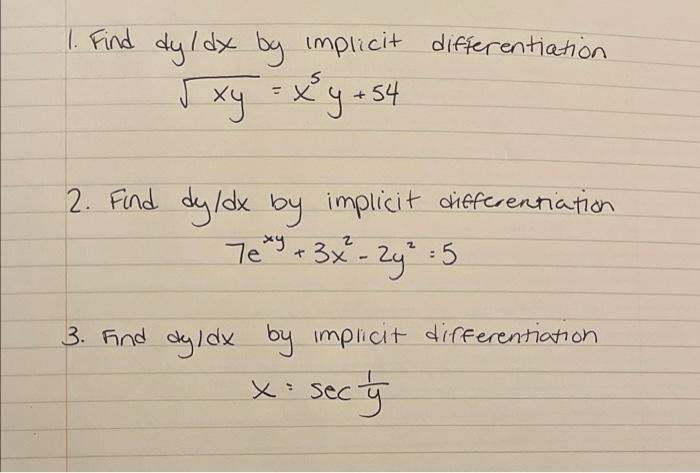 1. Find dy/dx by implicit differentiation
√xy = x⁵y + 54
2. Find dy/dx by implicit differentiation
7e^xy + 3x² - 2y² = 5
3. Find dy/dx by implicit differentiation
x = sec 1/y